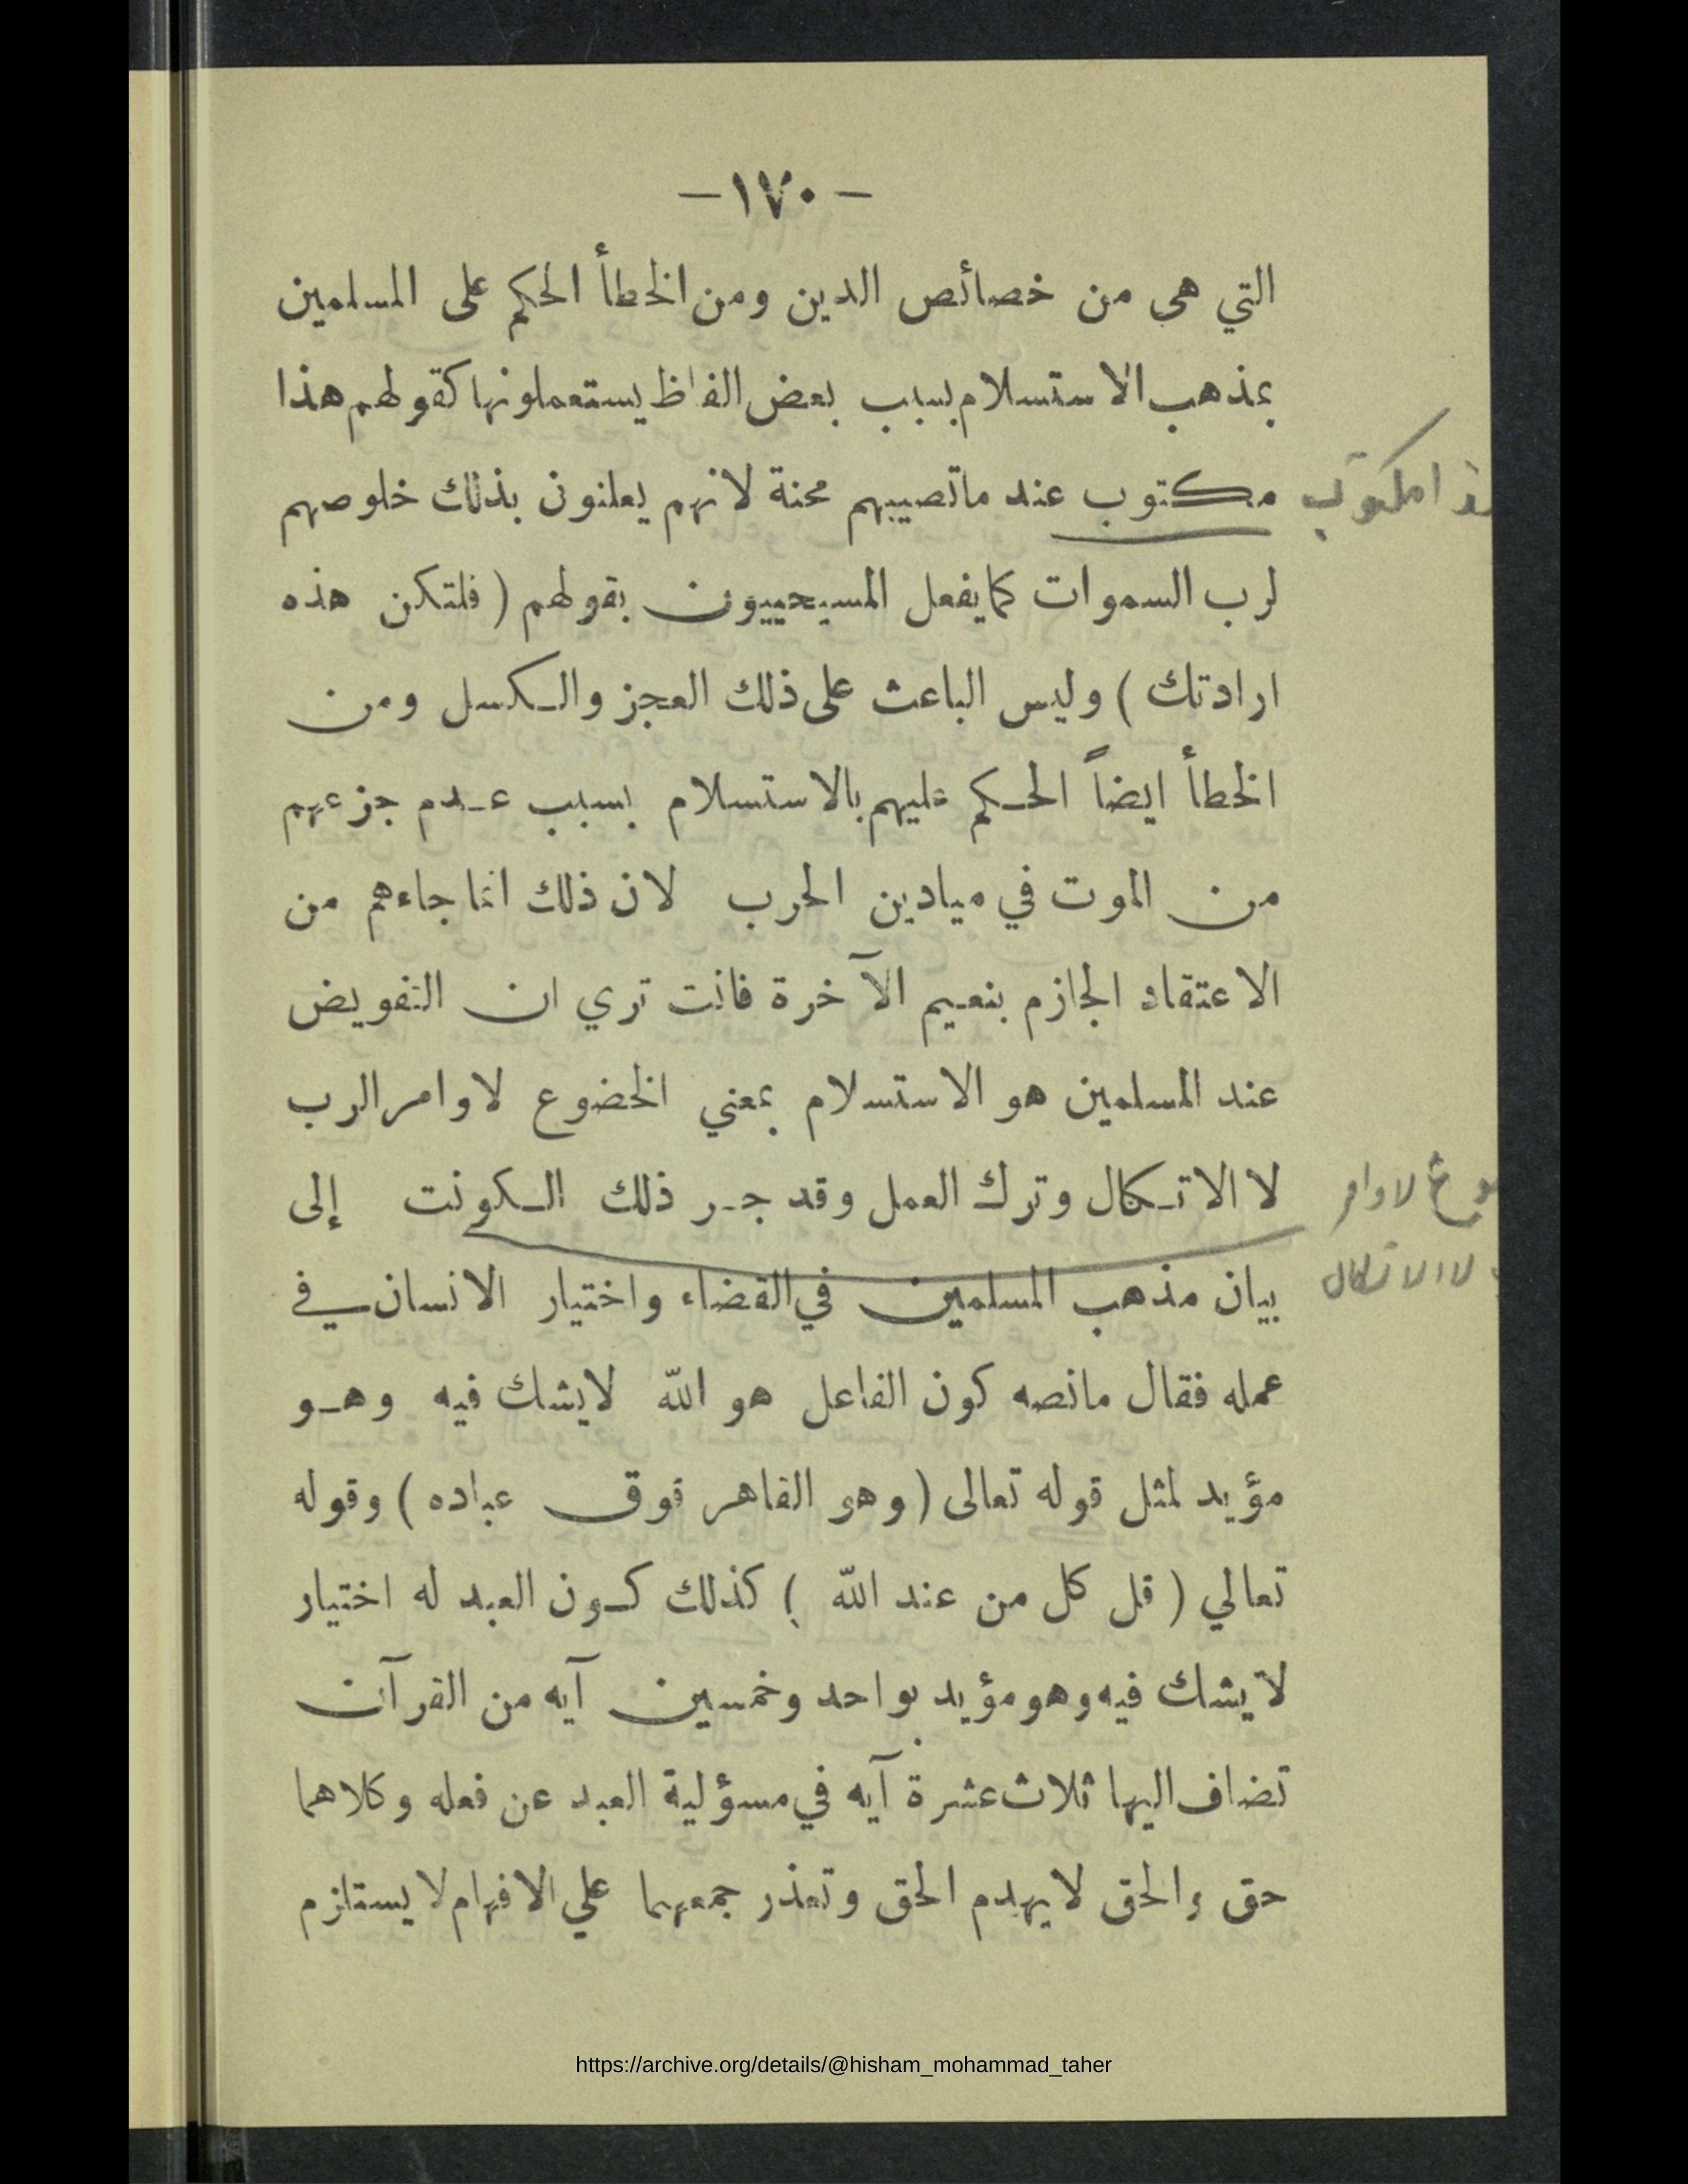 — ١٧٠ —
التي هى من خصائص الدين ومن الخطأ الحكم على المسلمين
بمذهب الاستسلام بسبب بعض الفاظ يستعملونها كقولهم هذا
مكتوب عند ماتصيبهم محنة لانهم يعلنون بذلك خلوصهم
لرب السموات كمايفعل المسيحييون بقولهم ( فلتكن هذه
ارادتك ) وليس الباعث على ذلك العجز والكسل ومن
الخطأ ايضاً الحكم عليهم بالاستسلام بسبب عدم جزعهم
من الموت في ميادين الحرب لان ذلك انما جاءهم من
الاعتقاد الجازم بنعيم الآخرة فانت تري ان التفويض
عند المسلمين هو الاستسلام بمعني الخضوع لاوامر الرب
لا الاتكال وترك العمل وقد جر ذلك الكونت إلى
بيان مذهب المسلمين في القضاء واختيار الانسان في
عمله فقال مانصه كون الفاعل هو الله لايشك فيه وهو
مؤيد لمثل قوله تعالى ( وهو القاهر فوق عباده ) وقوله
تعالي ( قل كل من عند الله ) كذلك كون العبد له اختيار
لايشك فيه وهو مؤيد بواحد وخمسين آيه من القرآن
تضاف اليها ثلاث عشرة آيه في مسؤلية العبد عن فعله وكلاهما
حق والحق لايهدم الحق وتعذر جمعهما علي الافهام لا يستلزم
مكتوب
لاوامر
لا الاتكال
https://archive.org/details/@hisham_mohammad_taher